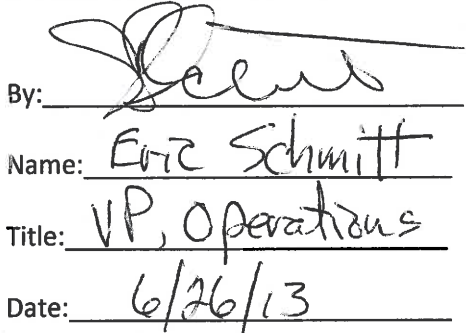 By:
Name: Eric Schmitt
Title: VP, Operations
Date: 6/26/13